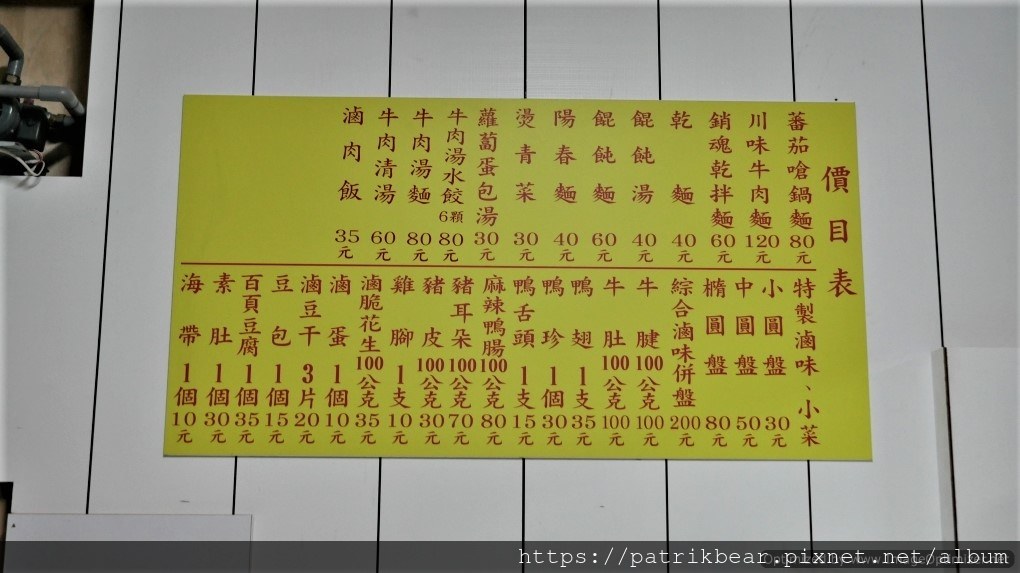 價目表
蕃茄嗆鍋麵80元
川味牛肉麵120元
銷魂乾拌麵60元
乾麵40元
餛飩湯40元
餛飩麵60元
陽春麵40元
燙青菜30元
蘿蔔蛋包湯30元
牛肉湯水餃6顆80元
牛肉湯麵80元
牛肉清湯60元
滷肉飯35元
特製滷味、小菜
小圓盤30元
中圓盤50元
橢圓盤80元
綜合滷味併盤200元
牛腱100公克100元
牛肚100公克100元
鴨翅1支35元
鴨珍1個30元
鴨舌頭1支15元
麻辣鴨腸100公克80元
豬耳朵100公克70元
豬皮100公克30元
雞腳1支10元
滷脆花生100公克35元
滷蛋1個10元
滷豆干3片20元
豆包1個15元
百頁豆腐1個35元
素肚1個30元
海帶1個10元
https://patrikbear.pixnet.net/album